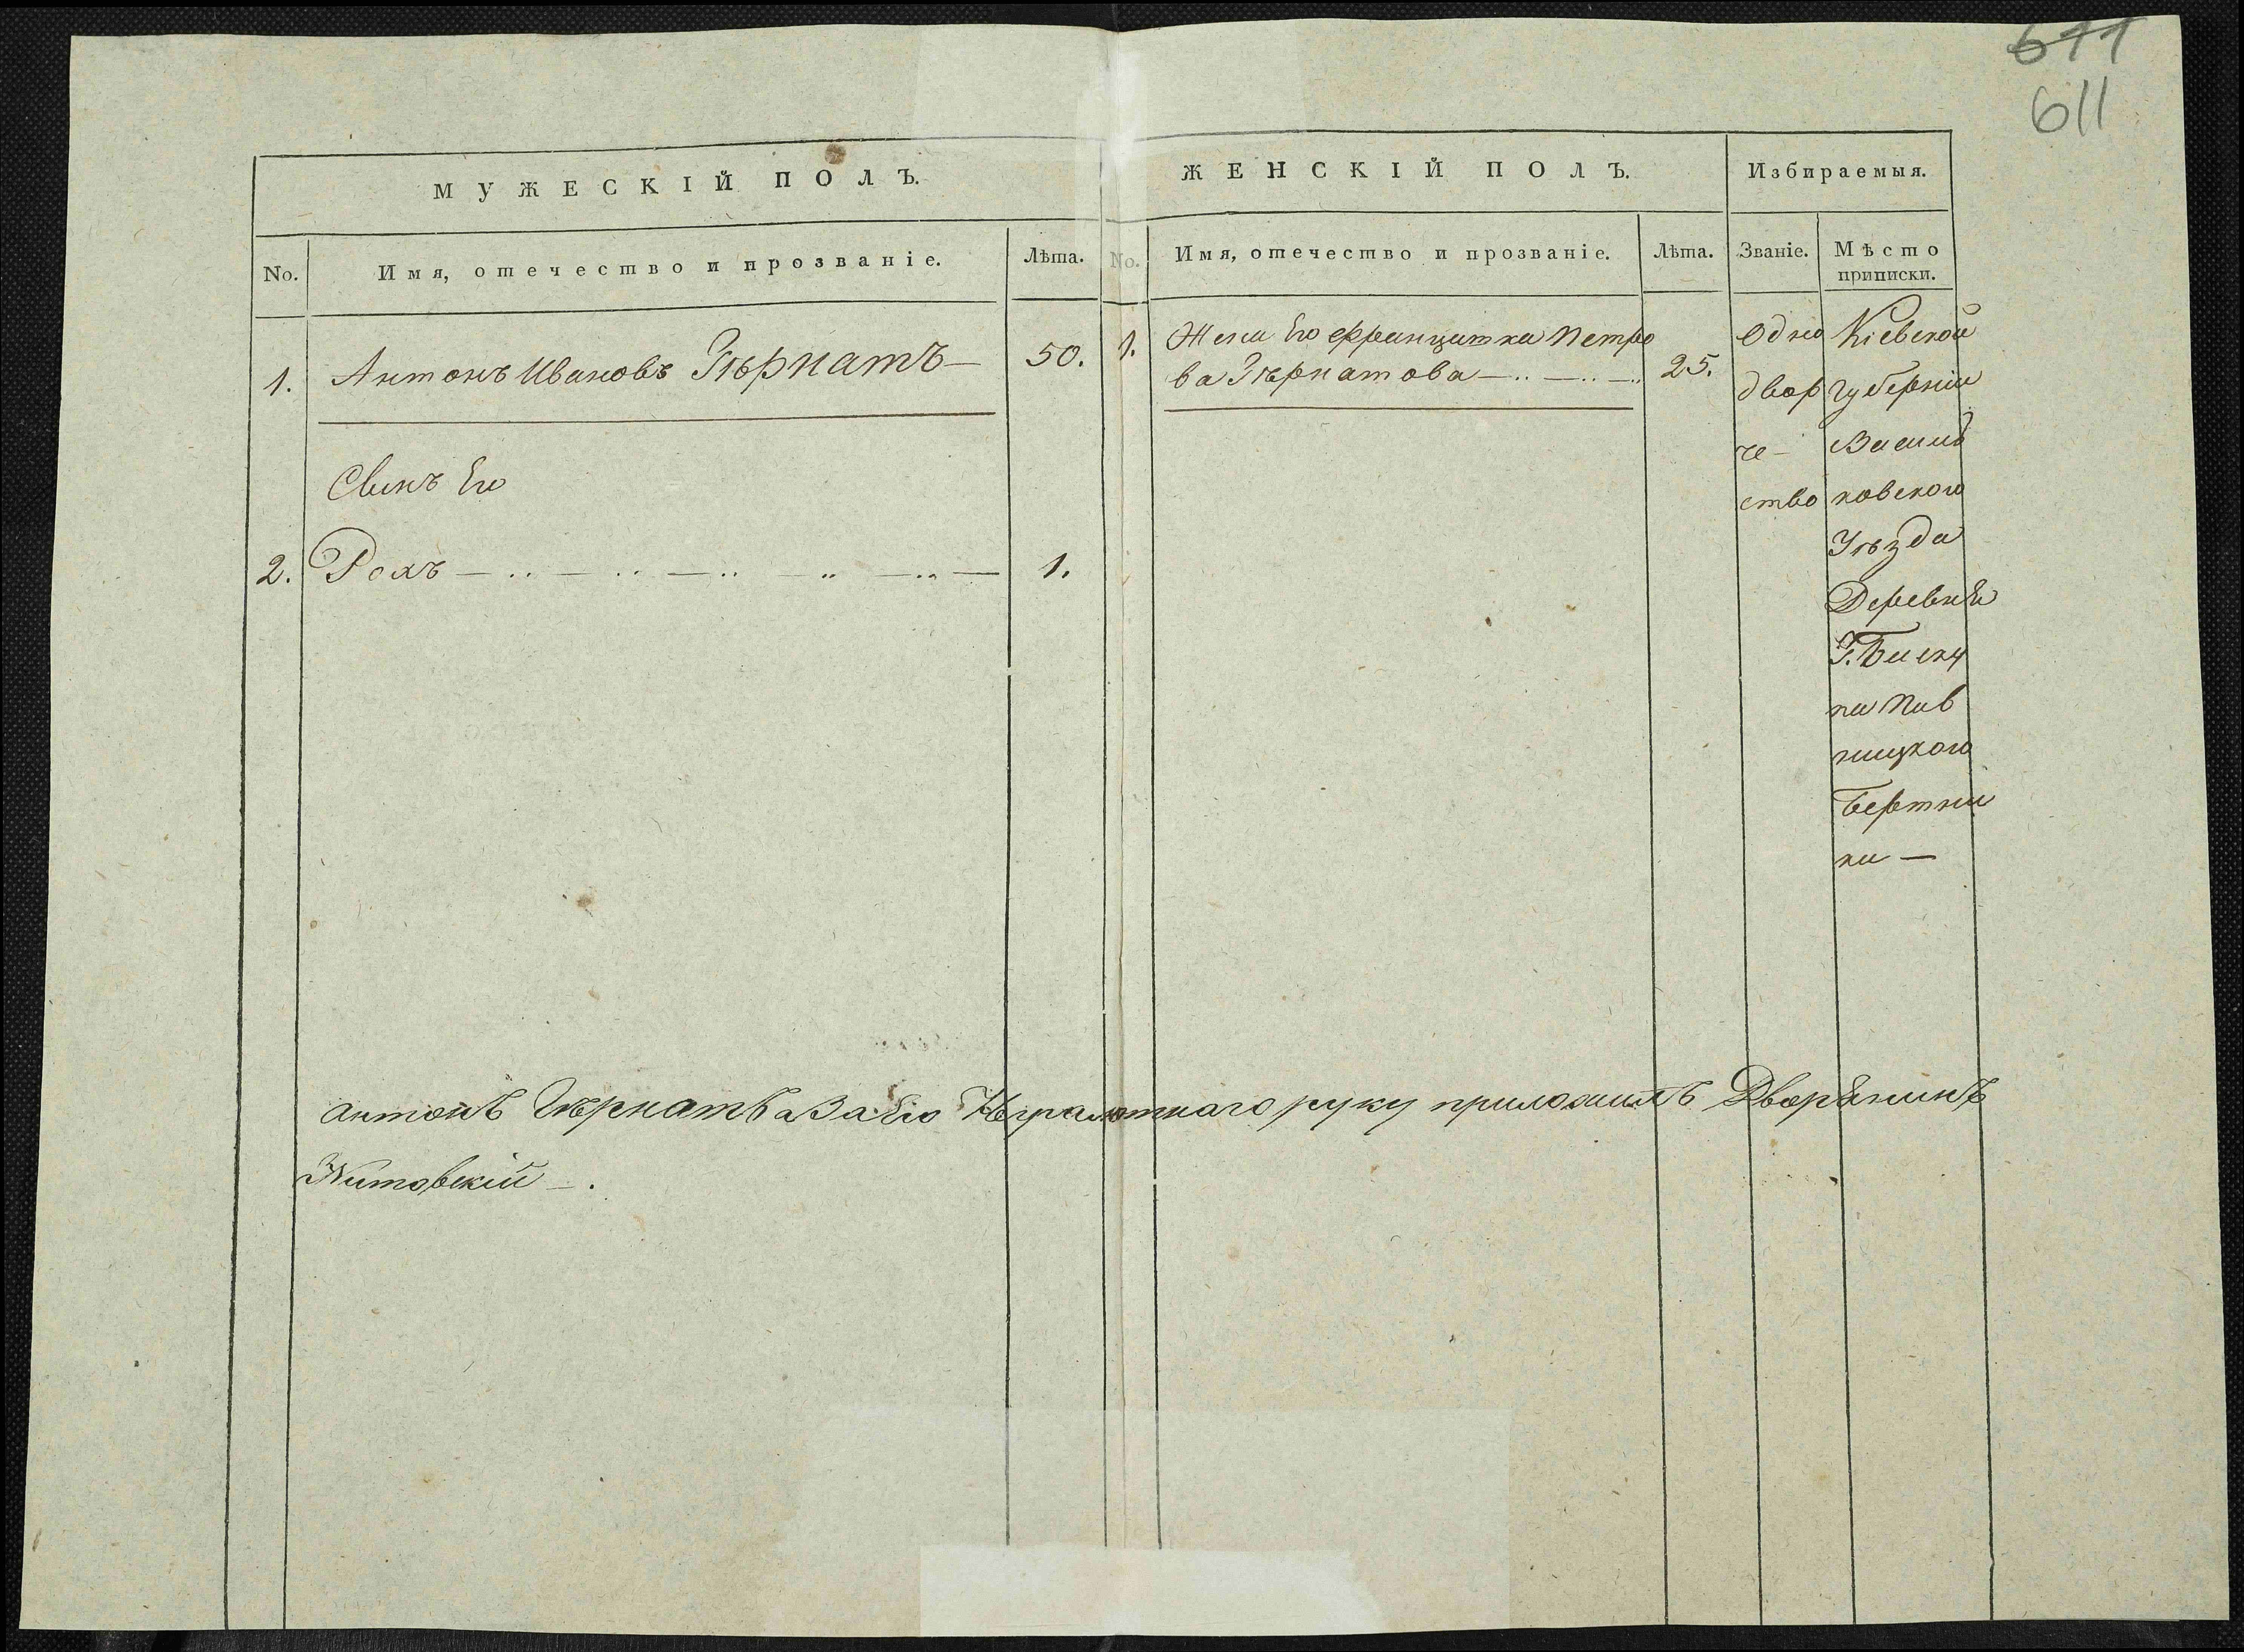 611
611
МУЖЕСКІЙ ПОЛЪ.
ЖЕНСКІЙ ПОЛЪ.
Избираемыя.
No.
Имя, отечество и прозваніе.
Лѣта.
No.
Имя, отечество и прозваніе.
Лѣта.
Званіе.
Мѣсто
приписки.
1.
Антонъ Ивановъ Гѣрнатъ—
50.
Сынъ Его
2.
Рохъ
1.
1.
Жена Его Францишка Петро
ва Гѣрнатова
25.
Одно
двор
че-
ство
Кіевской
губерніи
Василь
ковского
Уѣзда
Деревни
Г. Биску
па Пив
ницкого
Бертни
ки —
Антонъ Гѣрнатъ а За Его Неграмотнаго руку приложилъ Дворенинъ
Житовскій —.